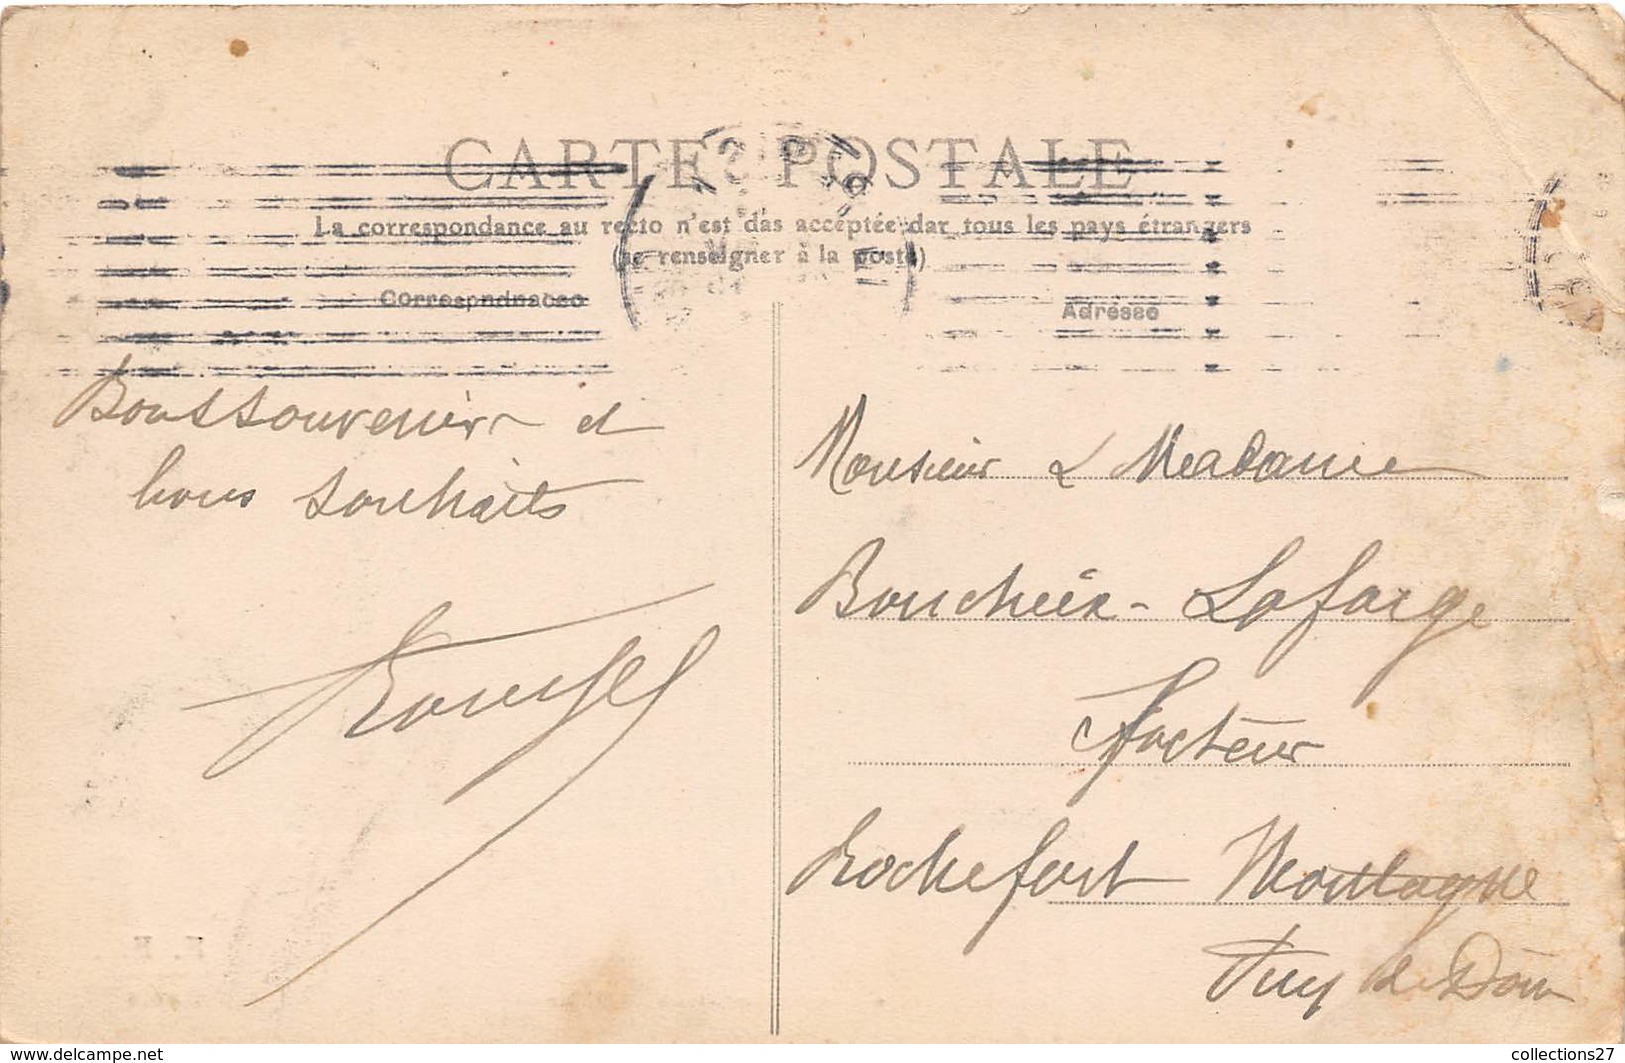 CARTE POSTALE
La correspondance au recto n'est das acceptée dar tous les pays étrangers
(se renseigner à la poste)
Correspndnacee
Adresse
Bons souvenirs et
bons souhaits
Monsieur & Madame
Boucheix - Lafarge
Facteur
Rochefort Montagne
Puy de Dôme
www.delcampe.net
collections27